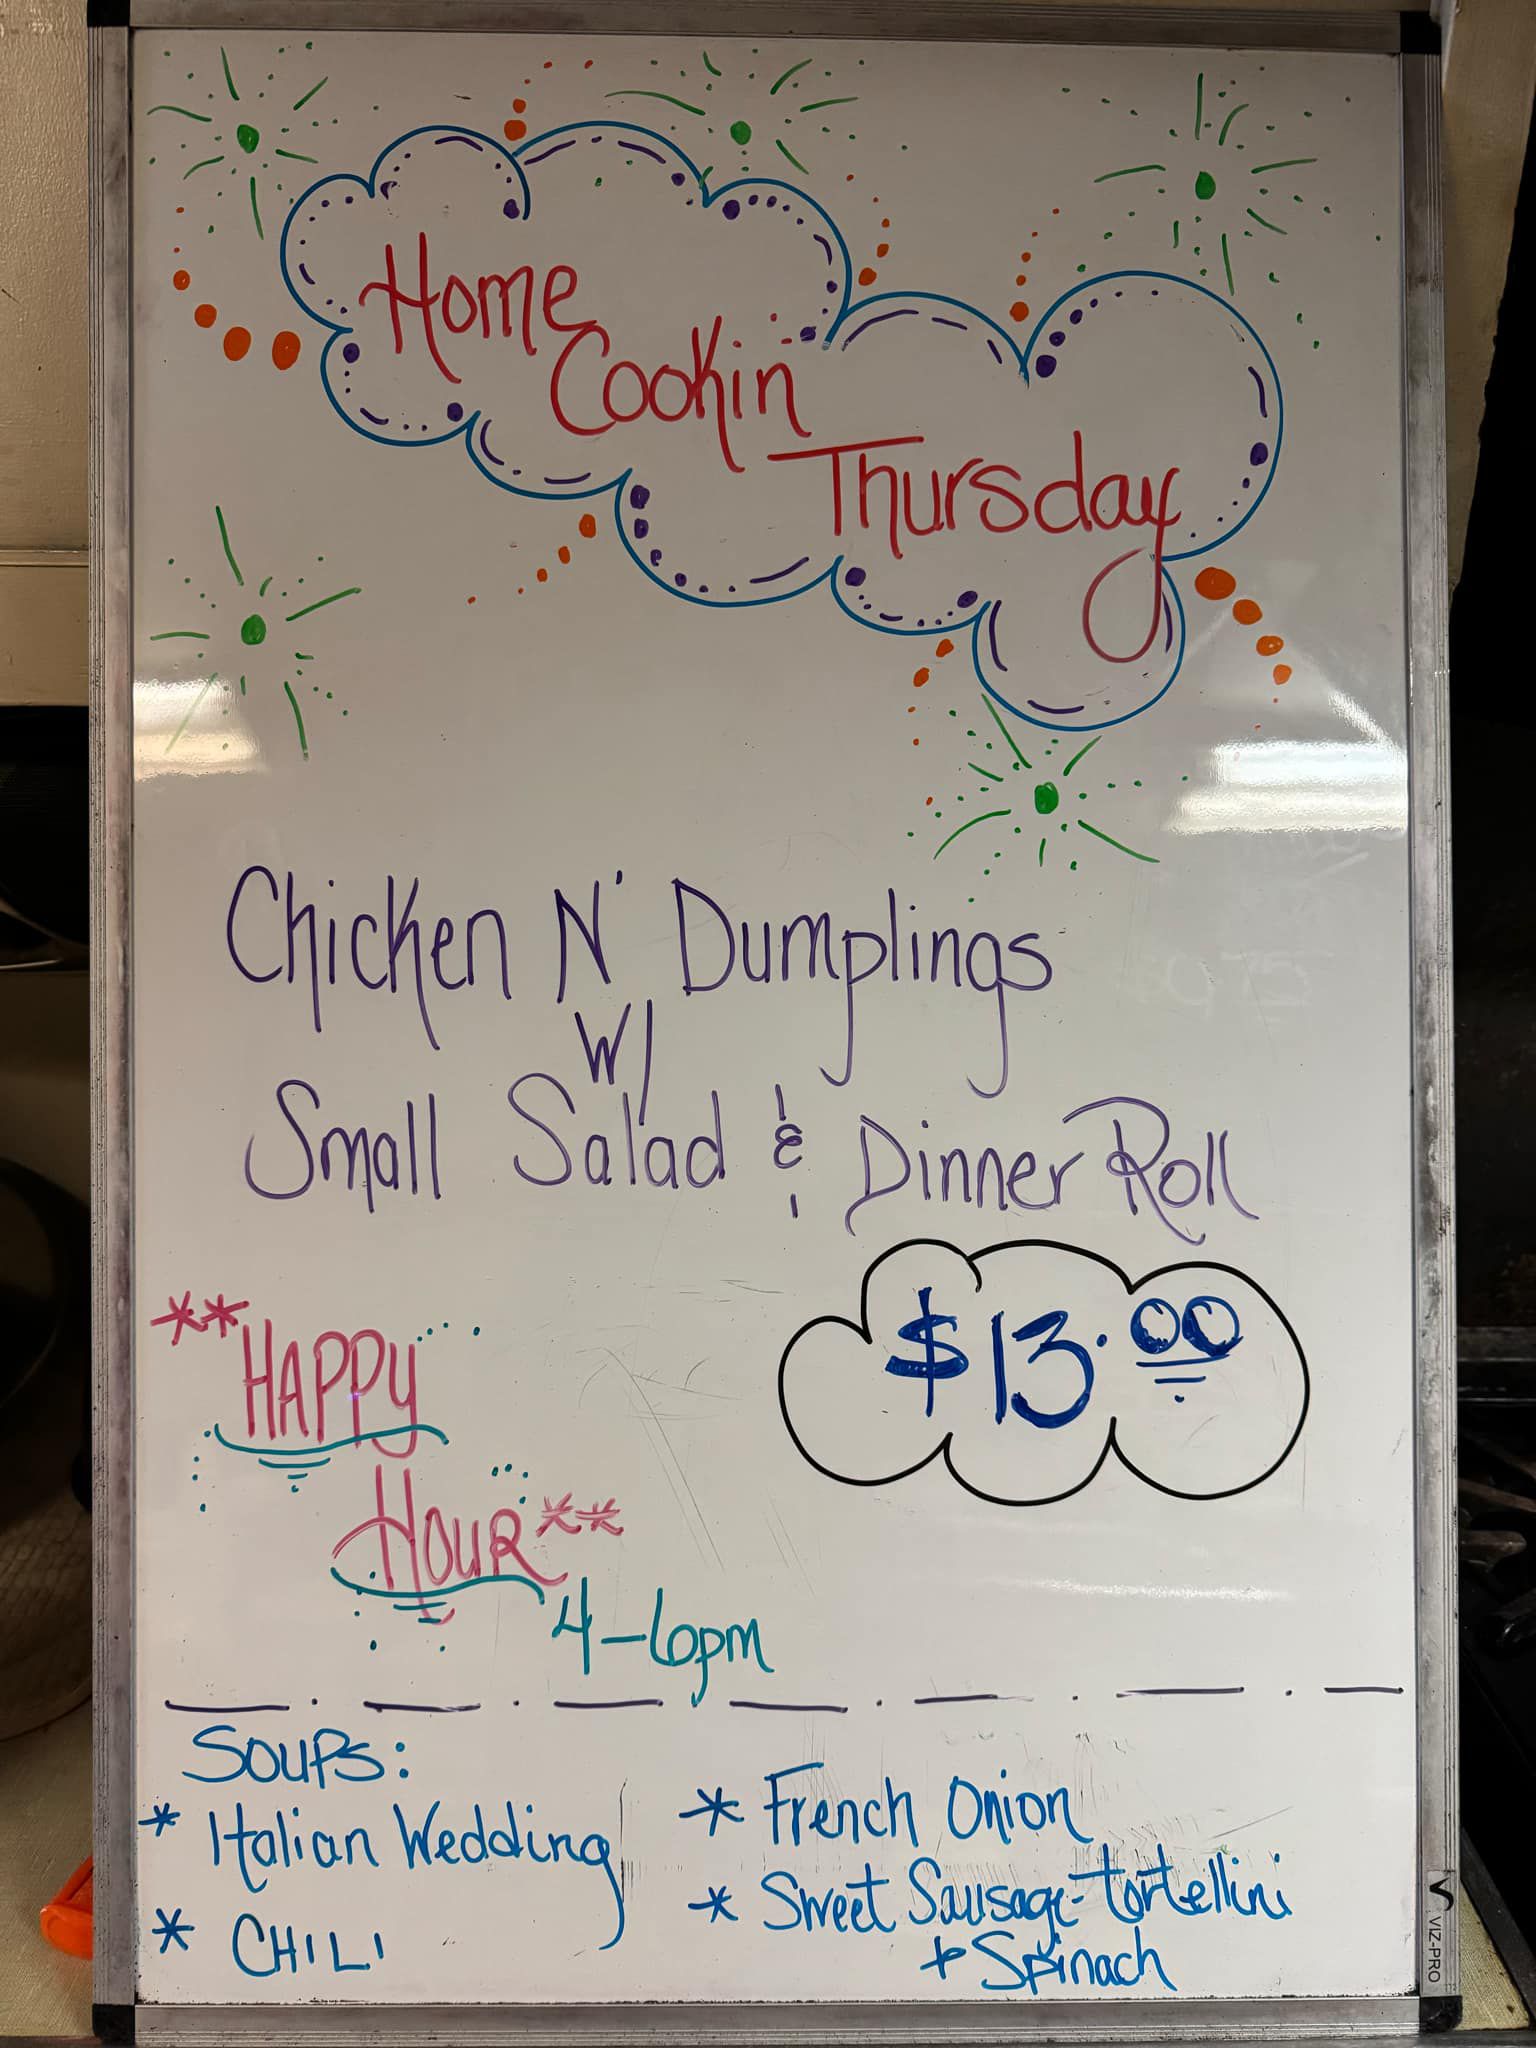 Home
Cookin
Thursday
Chicken N' Dumplings
W/
Small Salad & Dinner Roll
$13.00
**HAPPY
HOUR**
4-6pm
SOUPS:
* Italian Wedding
* CHILI
* French Onion
* Sweet Sausage-tortellini
+ Spinach
VIZ-PRO